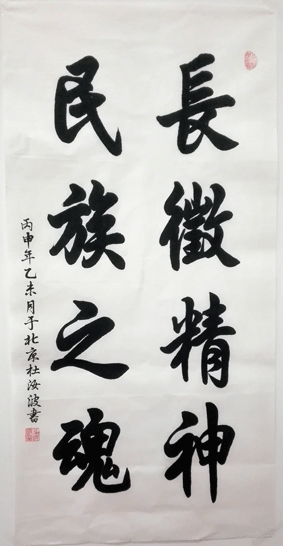 長徵精神
民族之魂
丙申年乙未月于北京杜汝波書